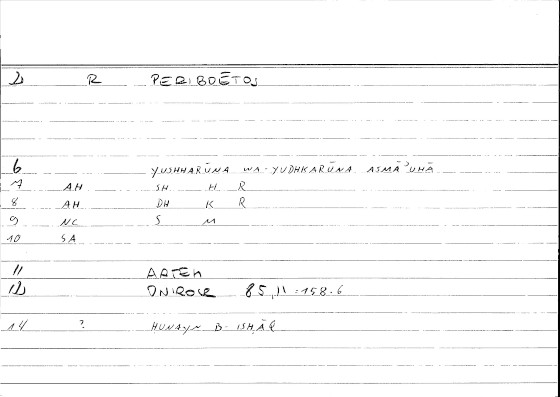 2 R PERIBOĒTOS
6 YUSHHARŪNA WA-YUDHKARŪNA ASMĀʾUHĀ
7 AH SH H R
8 AH DH K R
9 NC S M
10 SA
11 ARTEM
12 ONIROCR 85,11=158.6
14 ? HUNAYN B- ISḤĀQ